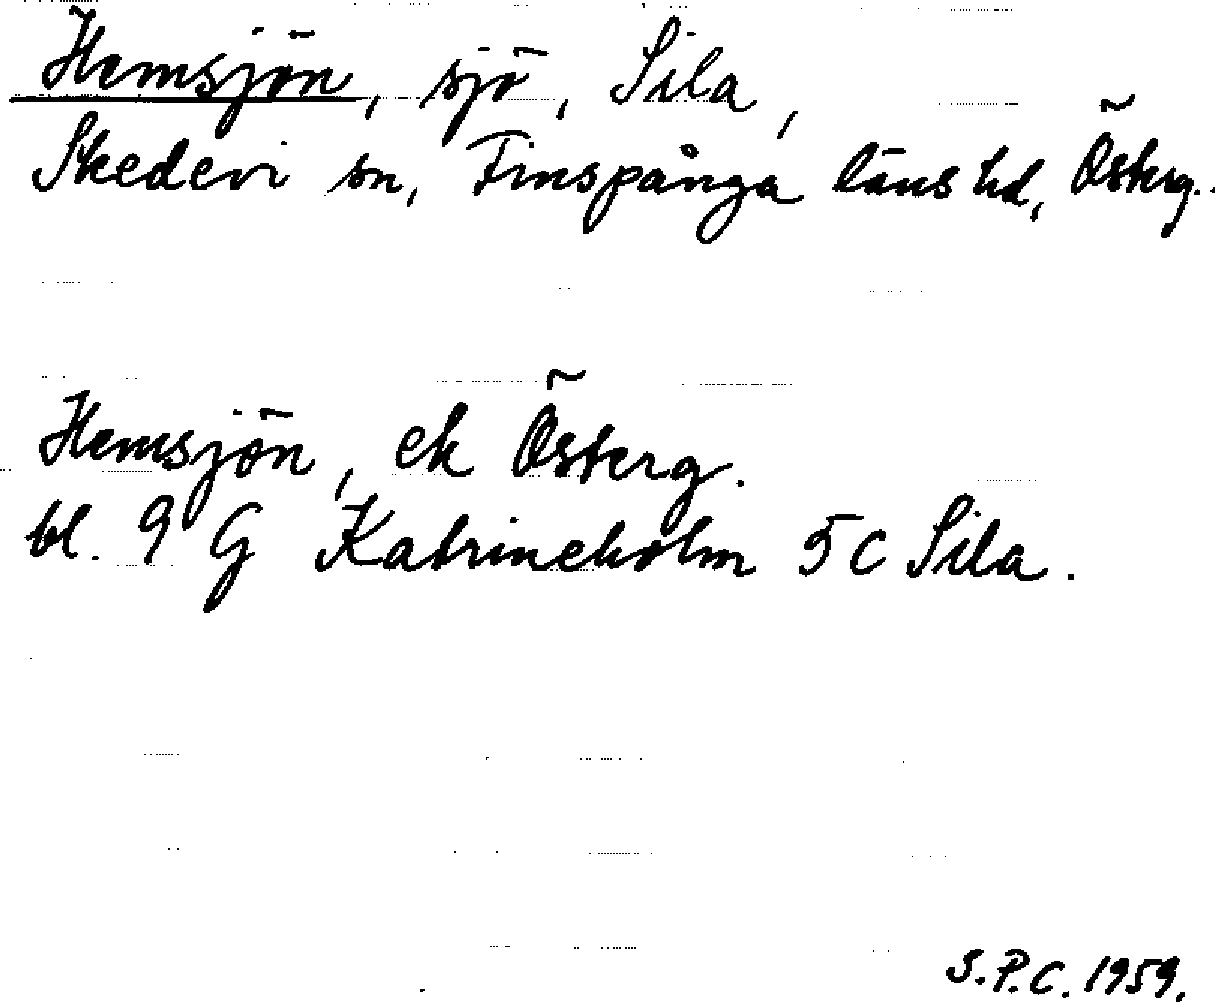 Hemsjön, sjö, Sila,
Skedevi sn, Finspånga läns hd, Österg.
Hemsjön, ek Österg.
bl. 9 G Katrineholm 5c Sila.
S.P.C. 1959.